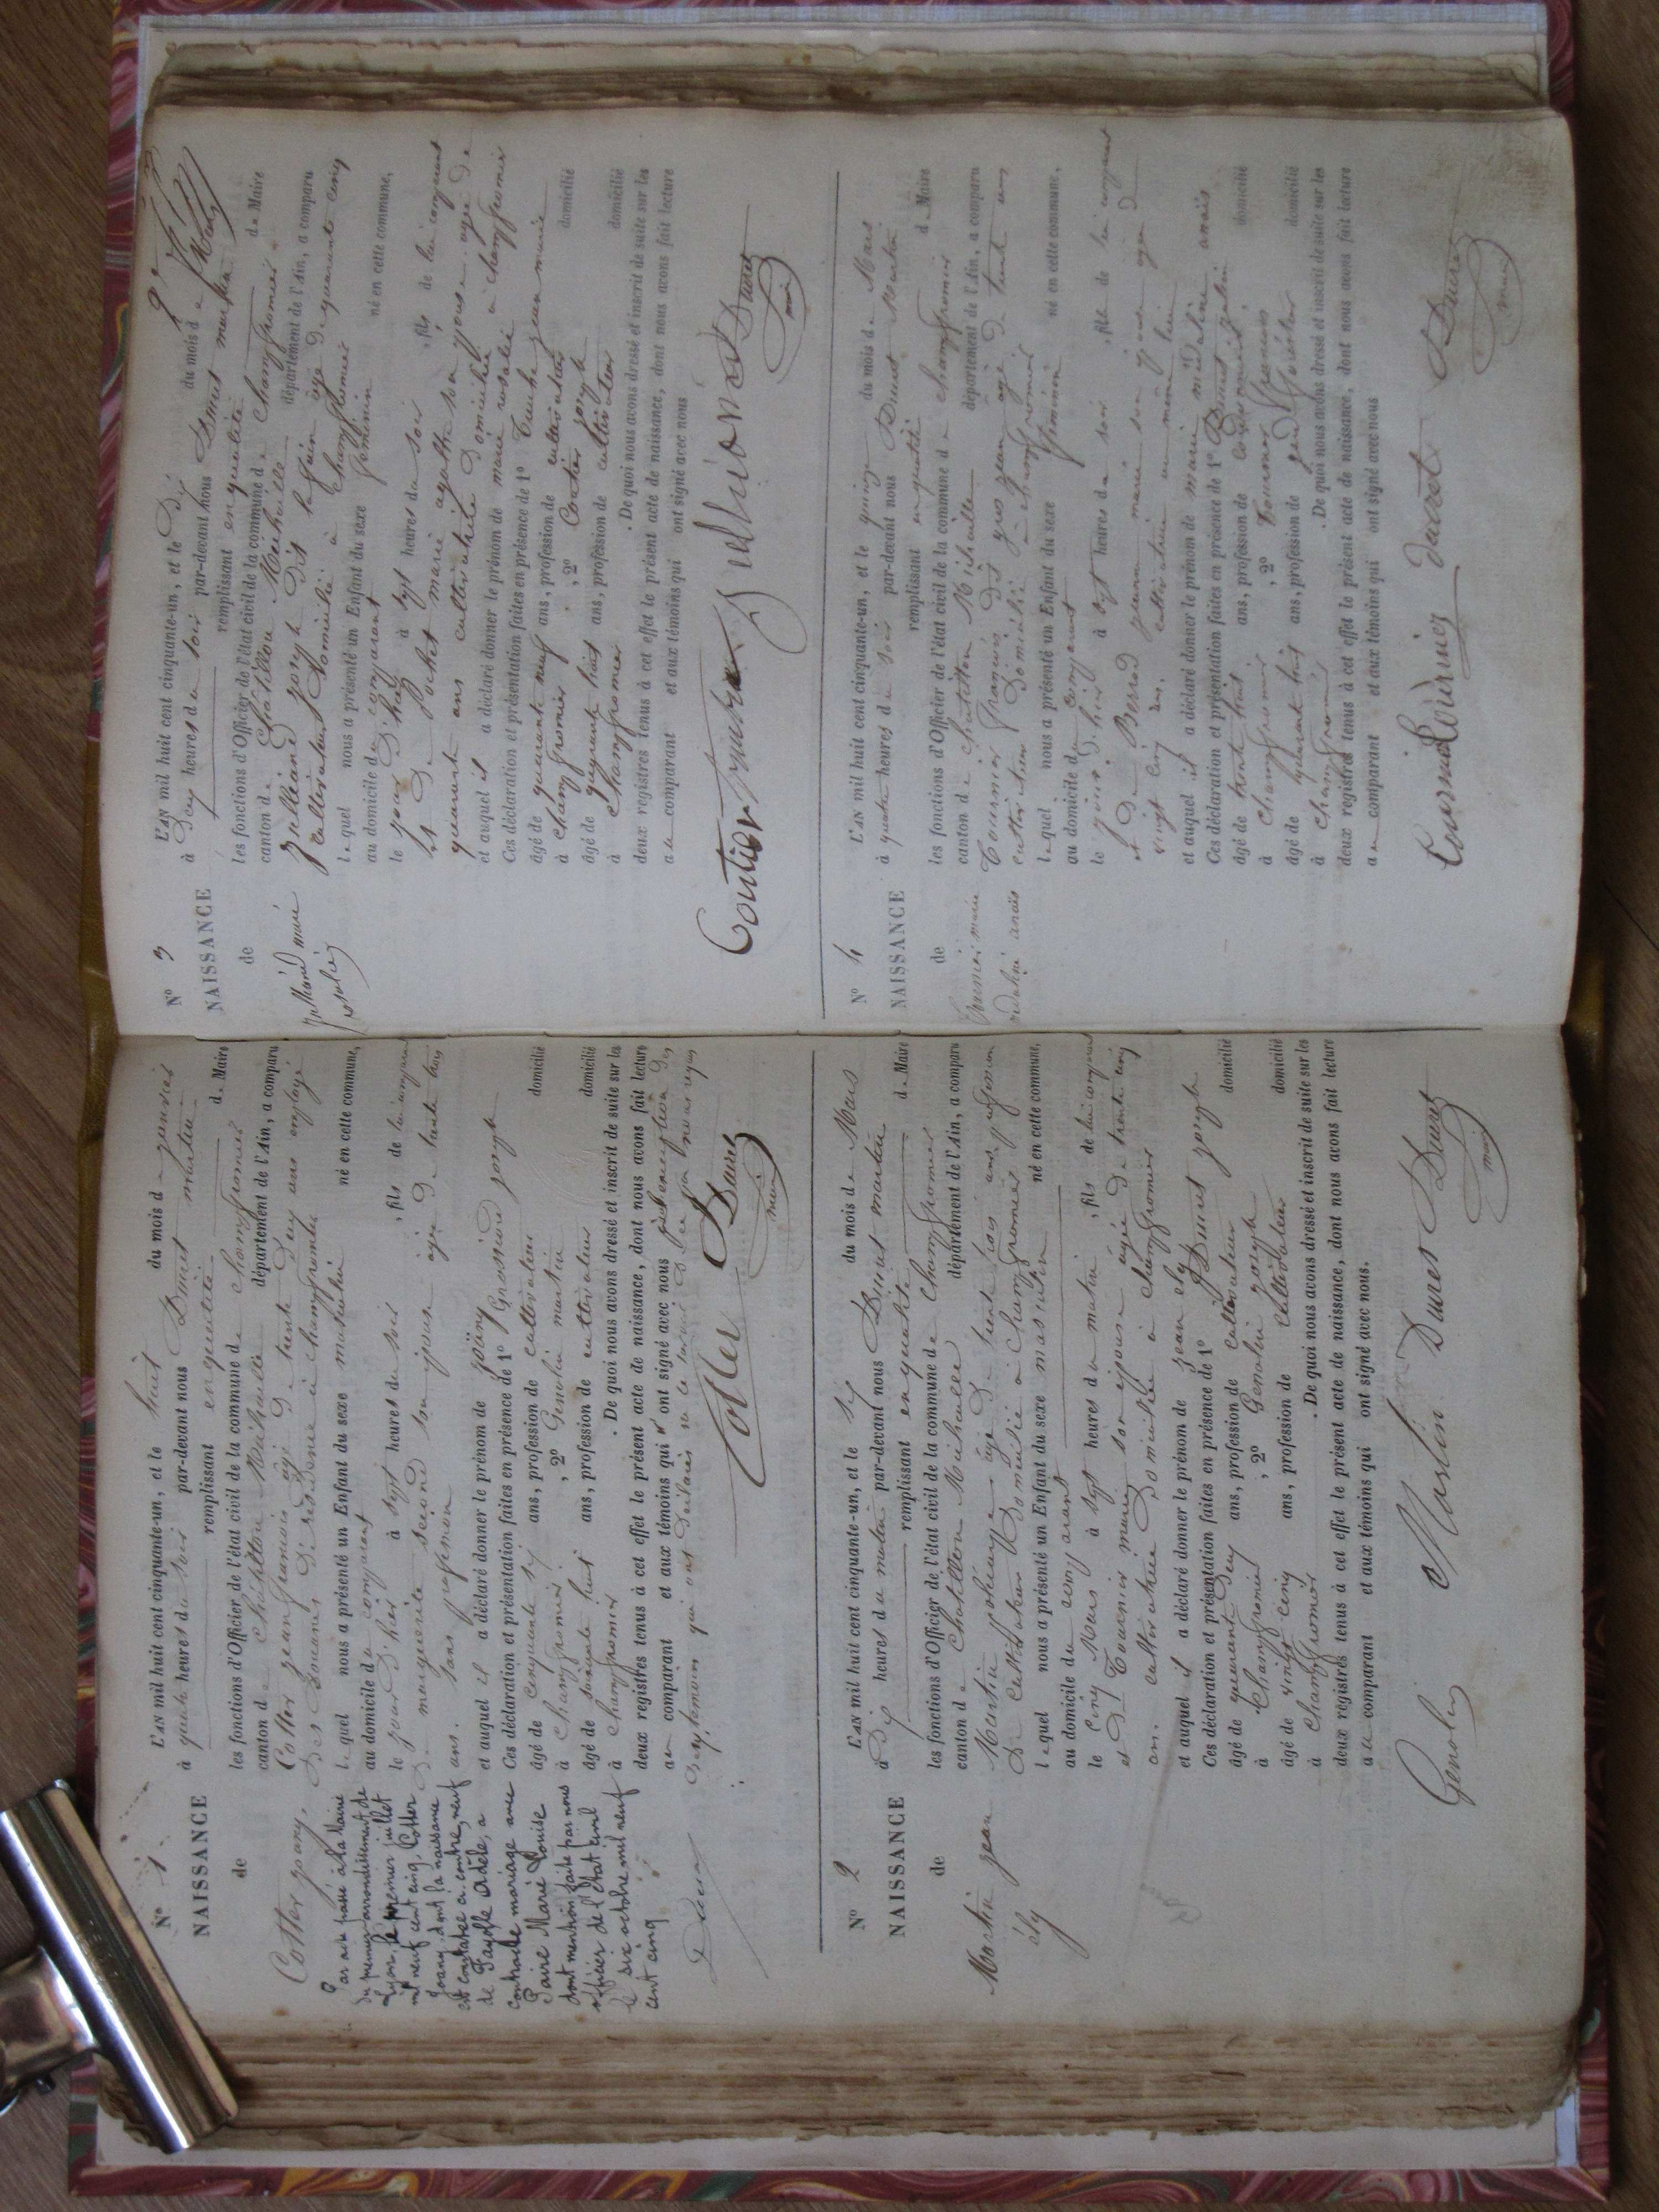 N° 1
NAISSANCE
de
Cotter joany.
Par acte passé à la Mairie
du premier arrondissement de
Lyon, le premier juillet
mil neuf cent cinq, Cotter
Joany, dont la naissance
est constatée ci-contre, neuf
de Fayolle Adèle, a
contracté mariage avec
Paire Marie Louise
dont mention faite par nous
officier de l'état civil
le six octobre mil neuf
cent cinq
L'AN mil huit cent cinquante-un, et le huit du mois de janvier
à quatre heures du soir par-devant nous Duret martin
remplissant en qualité de Maire
les fonctions d'Officier de l'état civil de la commune de Champfromier
canton de Chatillon Michaille département de l'Ain, a comparu
Cotter jean françois âgé de trente deux ans employé
des Douanes de résidence à champfromier
lequel nous a présenté un Enfant du sexe masculin né en cette commune,
au domicile du comparant
le jour d'hier à sept heures du soir , fils de lui comparant
de marguerite second son épouse âgée de trente trois
ans. sans profession
et auquel il a déclaré donner le prénom de joany
Ces déclaration et présentation faites en présence de 1° Grosgurd joseph
âgé de cinquante six ans, profession de cultivateur domicilié
à Champfromier , 2° Genolin martin
âgé de soixante huit ans, profession de cultivateur domicilié
à champfromier . De quoi nous avons dressé et inscrit de suite sur les
deux registres tenus à cet effet le présent acte de naissance, dont nous avons fait lecture
au comparant et aux témoins qui ont signé avec nous à l'exception des
deux témoins qui ont déclaré ne le savoir de ce par nous requis
Cotter Duret
maire
N° 2
NAISSANCE
de
Martin jean
ély
L'AN mil huit cent cinquante-un, et le six du mois de Mars
à dix heures du matin par-devant nous Duret martin
remplissant en qualité de Maire
les fonctions d'Officier de l'état civil de la commune de Champfromier
canton de Chatillon Michaille département de l'Ain, a comparu
Martin âgé de trente trois ans, profession
de cultivateur domicilié à Champfromier
lequel nous a présenté un Enfant du sexe masculin né en cette commune,
au domicile du comparant
le cinq Mars à sept heures du matin , fils de lui comparant
et de Tournier marie son épouse âgée de trente cinq
ans. cultivatrice domiciliée à champfromier
et auquel il a déclaré donner le prénom de jean ély
Ces déclaration et présentation faites en présence de 1° Duret joseph
âgé de quarante deux ans, profession de cultivateur domicilié
à Champfromier , 2° Genolin joseph
âgé de vingt cinq ans, profession de cultivateur domicilié
à Champfromier . De quoi nous avons dressé et inscrit de suite sur les
deux registres tenus à cet effet le présent acte de naissance, dont nous avons fait lecture
au comparant et aux témoins qui ont signé avec nous.
Genolin Martin Duret Duret
maire
N° 3
NAISSANCE
de
julliand marie
rosalie
L'AN mil huit cent cinquante-un, et le dix du mois de Mars
à deux heures du soir par-devant nous Duret martin
remplissant en qualité de Maire
les fonctions d'Officier de l'état civil de la commune de Champfromier
canton de Chatillon Michaille département de l'Ain, a comparu
julliand joseph dit âgé de quarante cinq
cultivateur domicilié à Champfromier
lequel nous a présenté un Enfant du sexe féminin né en cette commune,
au domicile du comparant
le jour d'hier à sept heures du soir , fils de lui comparant
et de Pochet marie agathe son épouse âgée de
quarante ans cultivatrice domiciliée à champfromier
et auquel il a déclaré donner le prénom de marie rosalie
Ces déclaration et présentation faites en présence de 1° Ducher jean marie
âgé de quarante neuf ans, profession de cultivateur domicilié
à champfromier , 2° Coutier joseph
âgé de quarante huit ans, profession de cultivateur domicilié
à Champfromier . De quoi nous avons dressé et inscrit de suite sur les
deux registres tenus à cet effet le présent acte de naissance, dont nous avons fait lecture
au comparant et aux témoins qui ont signé avec nous
Coutier Julliand Duret
maire
N° 4
NAISSANCE
de
Tournier marie
médeline anaïs
L'AN mil huit cent cinquante-un, et le quinze du mois de Mars
à quatre heures du soir par-devant nous Duret Martin
remplissant en qualité de Maire
les fonctions d'Officier de l'état civil de la commune de champfromier
canton de Chatillon Michaille département de l'Ain, a comparu
Tournier françois dit gros jean âgé de trente un
cultivateur domicilié à champfromier
lequel nous a présenté un Enfant du sexe féminin né en cette commune,
au domicile du comparant
le jour d'hier à sept heures du soir , fille de lui comparant
et de Berrod jeanne marie son épouse âgée de
vingt cinq ans. cultivatrice au même lieu
et auquel il a déclaré donner le prénom de marie médeline anaïs
Ces déclaration et présentation faites en présence de 1° Duret
âgé de trente huit ans, profession de domicilié
à Champfromier , 2° Tournier françois
âgé de ans, profession de garde forestier domicilié
à Champfromier . De quoi nous avons dressé et inscrit de suite sur les
deux registres tenus à cet effet le présent acte de naissance, dont nous avons fait lecture
au comparant et aux témoins qui ont signé avec nous
Tournier duret Duret
maire